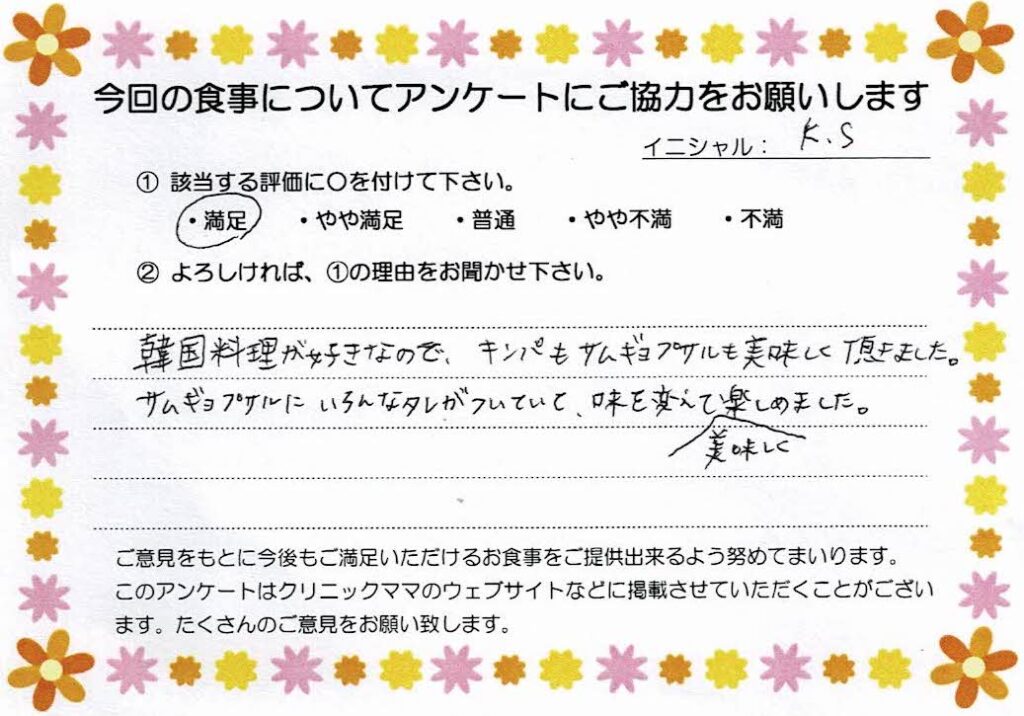 今回の食事についてアンケートにご協力をお願いします
イニシャル： K.S
① 該当する評価に〇を付けて下さい。
・満足 ・やや満足 ・普通 ・やや不満 ・不満
② よろしければ、①の理由をお聞かせ下さい。
韓国料理が好きなので、キンパもサムギョプサルも美味しく頂きました。
サムギョプサルにいろんなタレがついていて、味を変えて楽しめました。
美味しく
ご意見をもとに今後もご満足いただけるお食事をご提供出来るよう努めてまいります。
このアンケートはクリニックママのウェブサイトなどに掲載させていただくことがござい
ます。たくさんのご意見をお願い致します。